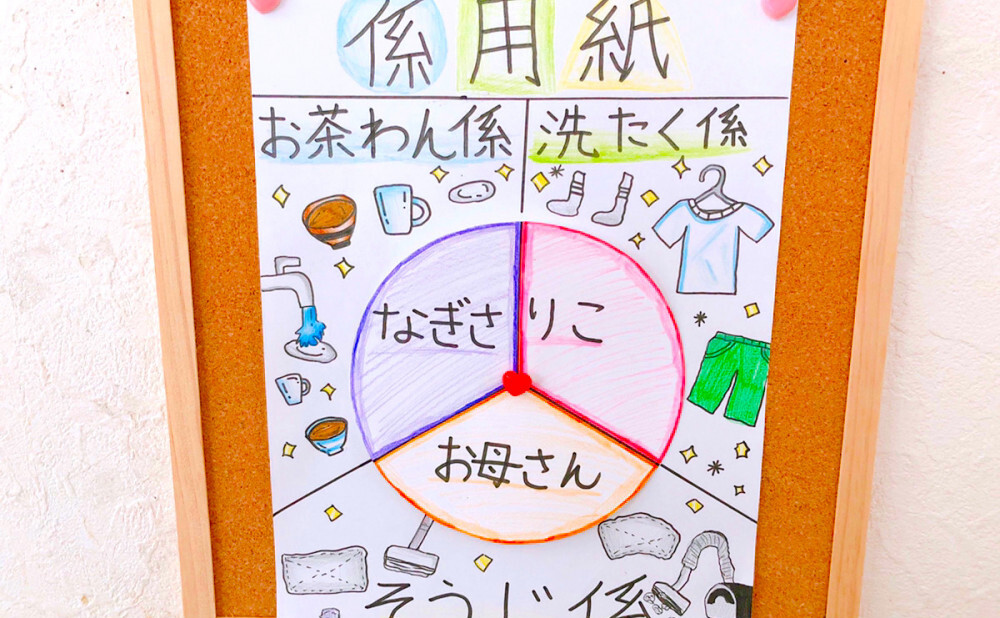 係用紙
お茶わん係
洗たく係
なぎさ
りこ
お母さん
そうじ係